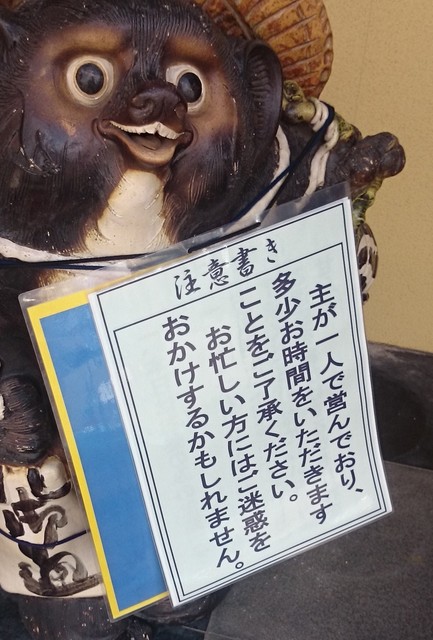 注意書き
主が一人で営んでおり、
多少お時間をいただきます
ことをご了承ください。
お忙しい方にはご迷惑を
おかけするかもしれません。